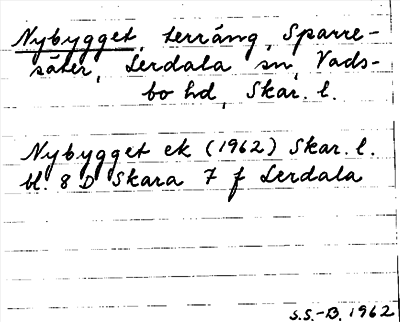 Nybygget, terräng, Sparre-
säter, Lerdala sn, Vads-
bo hd, Skar. l.
Nybygget ek (1962) Skar. l.
bl. 8 D Skara 7 f Lerdala
S.S.-B. 1962